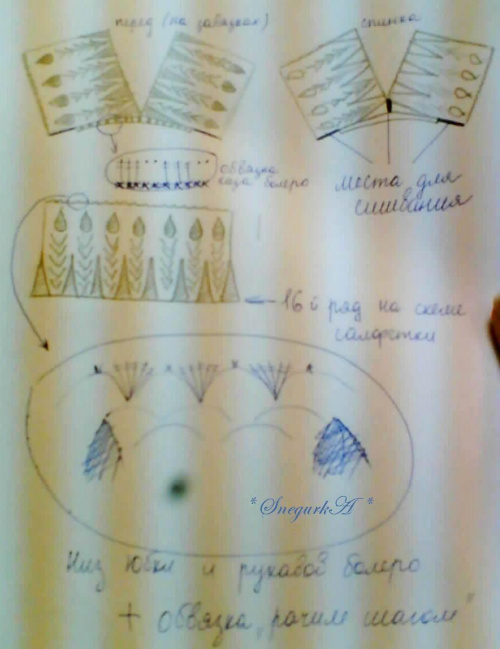 перед (на завязках)
спинка
обвязка
каза болеро
места для
сшивания
16й ряд на схеме
салфетки
*SnegurkA*
Низ юбки и рукавов болеро
+ обвязка „рачим шагом"